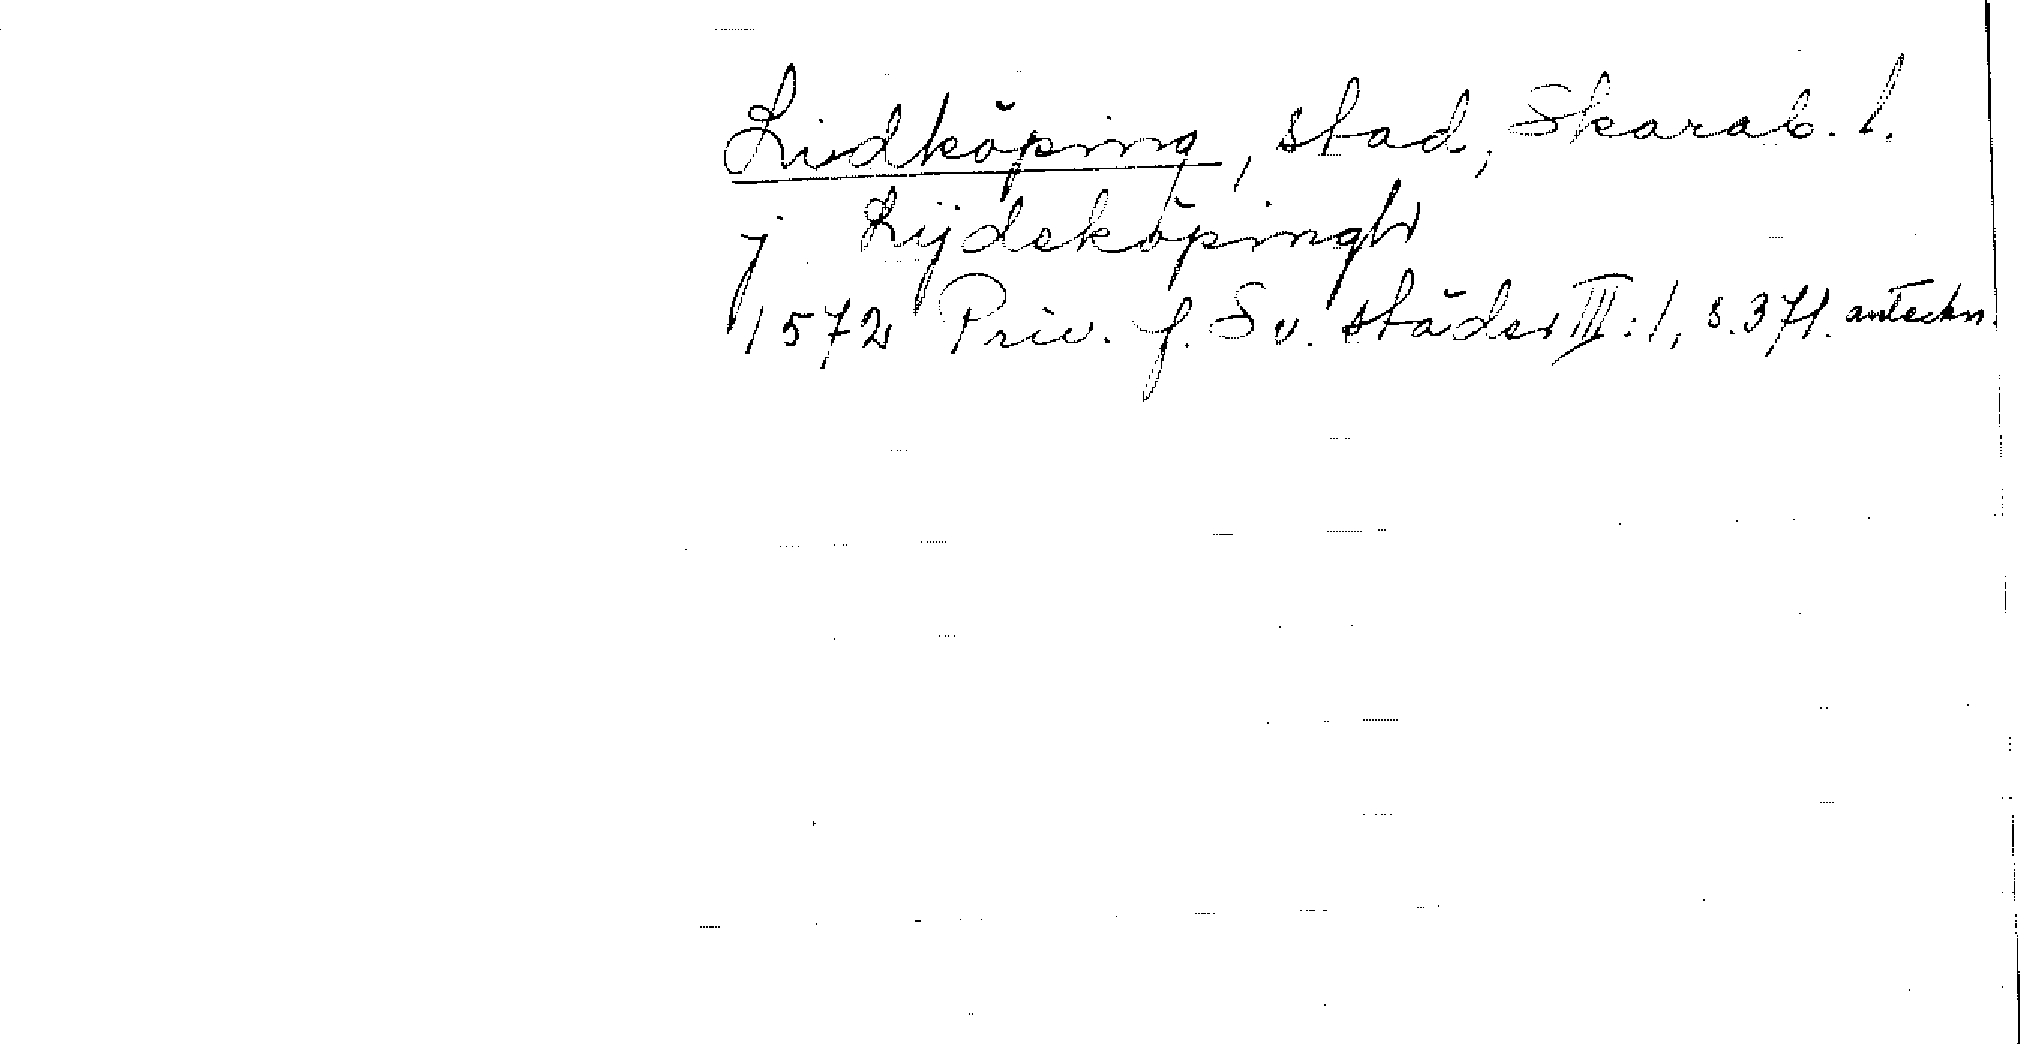 Lidköping, stad, Skarab. l.
j Lijdeköpingh
1572 Priv. f. Sv. städer III:1, s. 371. anteckn.